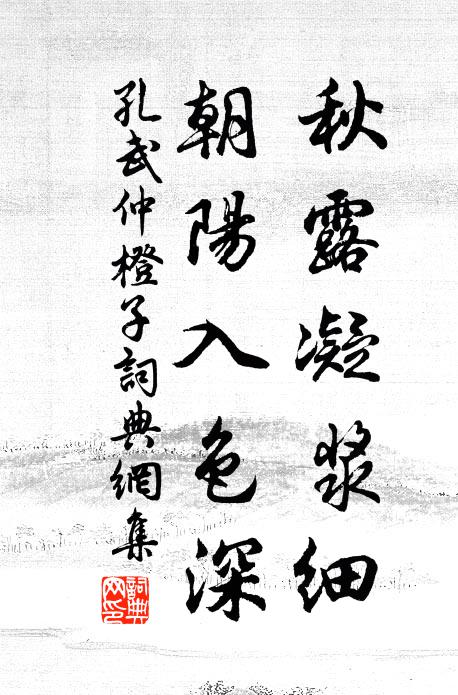 秋露凝漿細
朝陽入色深
孔武仲橙子詞典網集
詞典网印